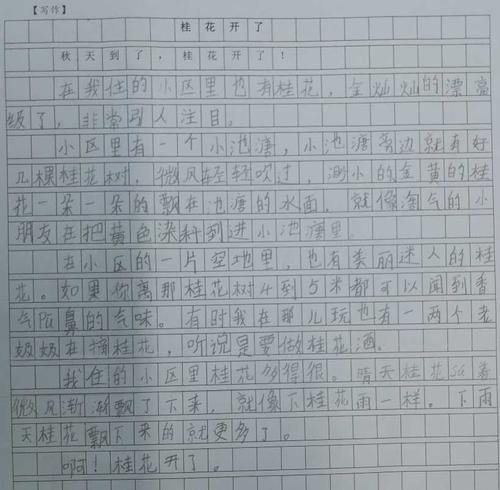 【写作】
桂花开了
秋天到了，桂花开了！
在我住的小区里也有桂花，金灿灿的漂亮
级了，非常引人注目。
小区里有一个小池溏，小池溏旁边就有好
几棵桂花树，微风轻轻吹过，渺小的金黄的桂
花一朵一朵的飘在池溏的水面，就像淘气的小
朋友在把黄色染料到进小池溏里。
在小区的一片空地里，也有美丽迷人的桂
花。如果你离那桂花树4到5米都可以闻到香
气的气味。有时我在那儿玩也有一两个老
奶奶在摘桂花，听说是要做桂花酒。
我住的小区里桂花多得很。晴天桂花
微风渐渐飘了下来，就像下桂花雨一样。下雨
天桂花飘下来的就更多了。
啊！桂花开了。